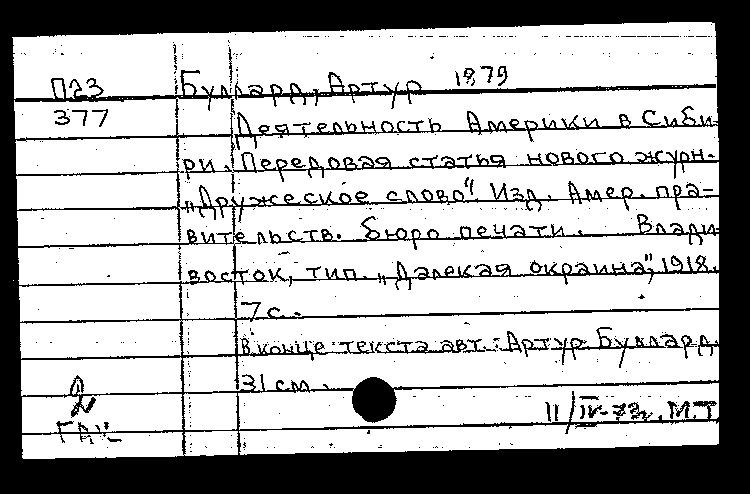 П23 Буллард, Артур 1879
377
Деятельность Америки в Сиби-
ри. Передовая статья нового журн.
„Дружеское слово“. Изд. Амер. пра-
вительств. бюро печати. Влади-
восток, тип. „Далекая окраина“, 1918.
7 с.
В конце текста авт.: Артур Буллард.
31 см.
2
ГАК
11/IV-73г. М.Т.